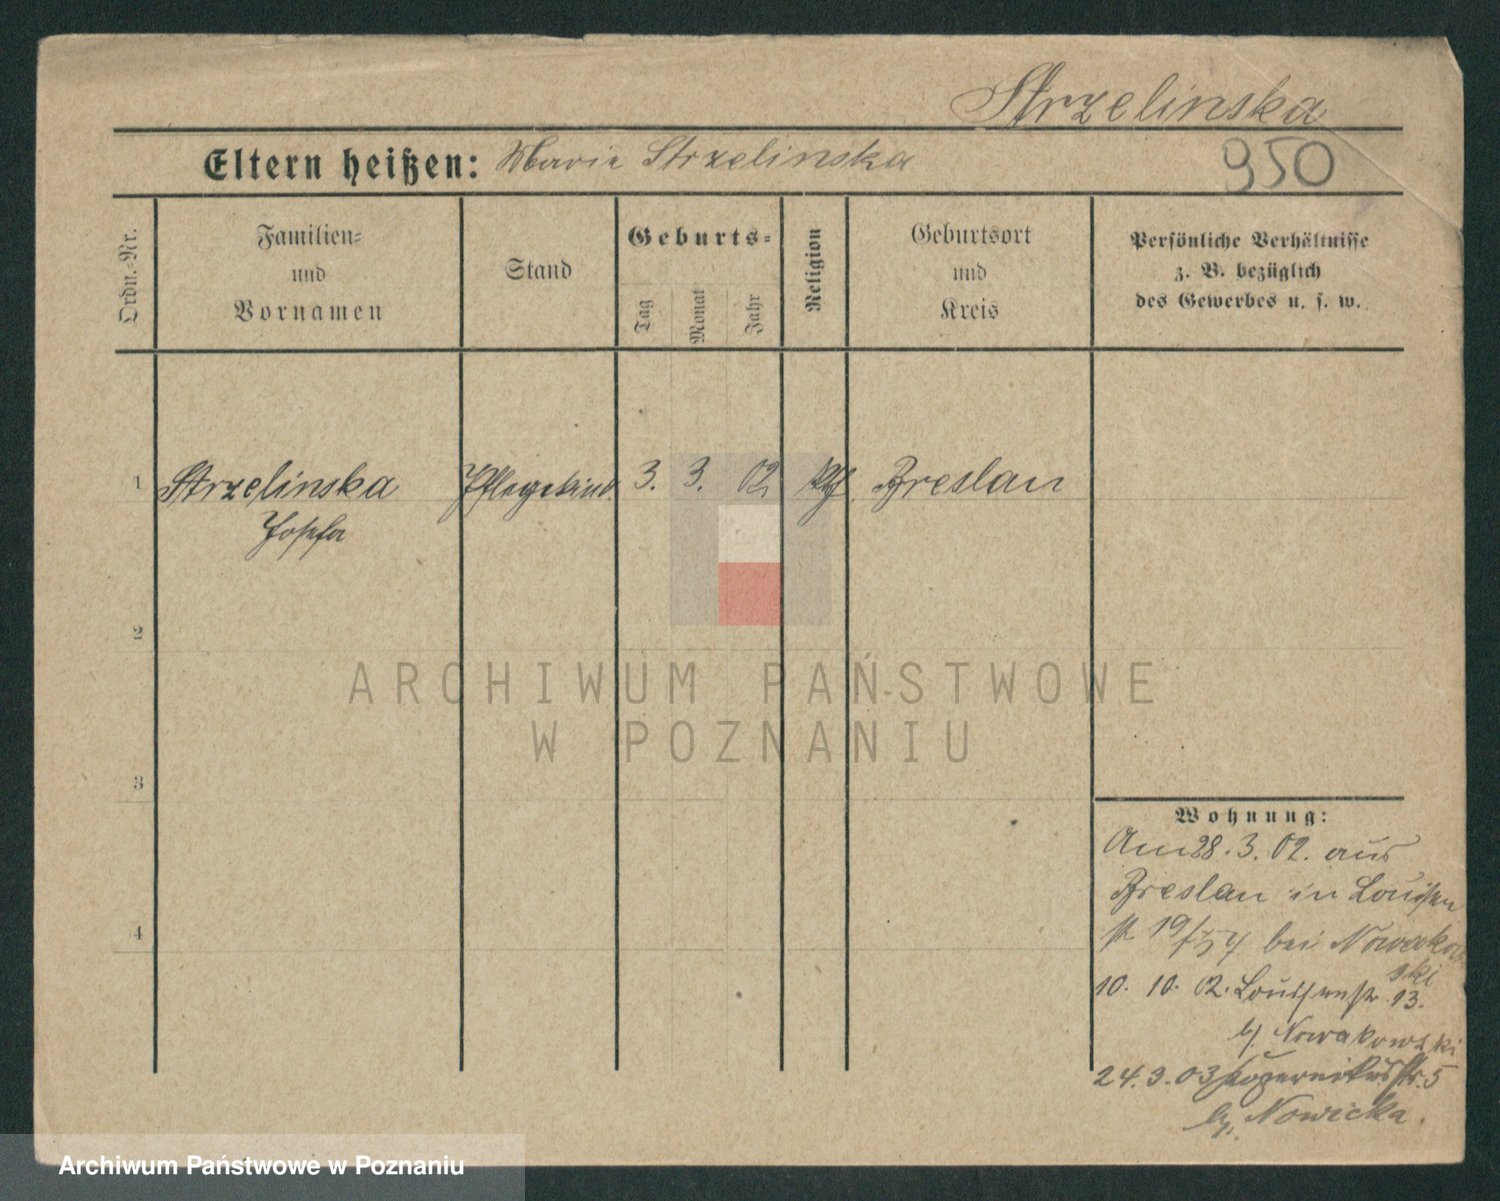 Strzelinska
Eltern heißen: Maria Strzelinska
950
Ordn.-Nr.
Familien-
und
Vornamen
Stand
Geburts-
Tag
Monat
Jahr
Religion
Geburtsort
und
Kreis
Persönliche Verhältnisse
z. B. bezüglich
des Gewerbes u. s. w.
1 Strzelinska Pflegekind 3. 3. 02 Breslau
Josefa
2
ARCHIWUM PAŃSTWOWE
W POZNANIU
3
Wohnung:
Am 28. 3. 02. aus
Breslau in Louisen
str 19 bei Nowakow
ski
4
10. 10. 02. Louisenstr 13.
b/ Nowakowski
24. 3. 03 Kopernikusstr. 5
Nowicka.
Archiwum Państwowe w Poznaniu